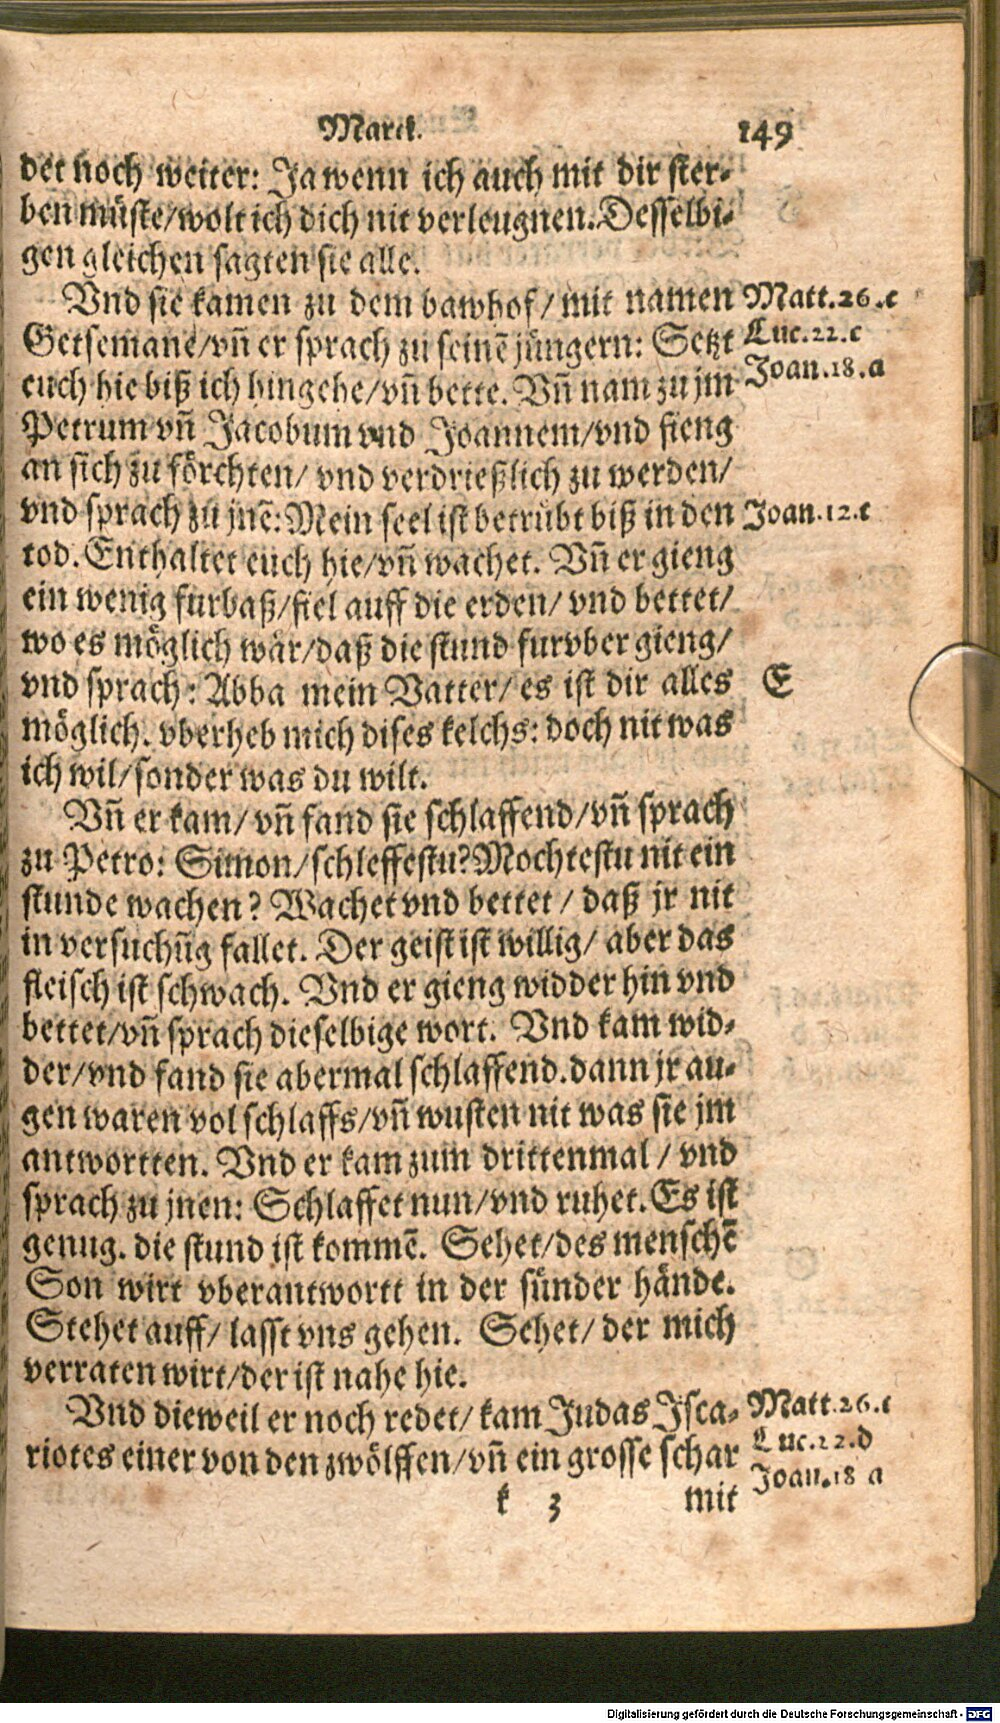 Marck. 149
det noch weiter: Ja wenn ich auch mit dir ster-
ben müste/wolt ich dich nit verleugnen. Desselbi-
gen gleichen sagten sie alle.
Vnd sie kamen zu dem bawhof/ mit namen Matt.26.c
Getsemane/vñ er sprach zu seinē jüngern: Setzt Luc.22.c
euch hie biß ich hingehe/vñ bette. Vñ nam zu jm Joan.18.a
Petrum vñ Jacobum vnd Joannem/vnd fieng
an sich zu förchten/ vnd verdrießlich zu werden/
vnd sprach zu jnē: Mein seel ist betrübt biß in den Joan.12.c
tod. Enthaltet euch hie/vñ wachet. Vñ er gieng
ein wenig furbaß/fiel auff die erden/ vnd bettet/
wo es möglich wär/daß die stund furvber gieng/
vnd sprach: Abba mein Vatter/ es ist dir alles E
möglich. vberheb mich dises kelchs: doch nit was
ich wil/sonder was du wilt.
Vñ er kam/ vñ fand sie schlaffend/vñ sprach
zu Petro: Simon/schleffestu? Mochtestu nit ein
stunde wachen? Wachet vnd bettet/ daß jr nit
in versuchūg fallet. Der geist ist willig/ aber das
fleisch ist schwach. Vnd er gieng widder hin vnd
bettet/vñ sprach dieselbige wort. Vnd kam wid-
der/vnd fand sie abermal schlaffend. dann jr au-
gen waren vol schlaffs/vñ wusten nit was sie jm
antwortten. Vnd er kam zum drittenmal/ vnd
sprach zu jnen: Schlaffet nun/vnd ruhet. Es ist
genug. die stund ist kommē. Sehet/des menschē
Son wirt vberantwortt in der sünder hände.
Stehet auff/ lasst vns gehen. Sehet/ der mich
verraten wirt/der ist nahe hie.
Vnd dieweil er noch redet/ kam Judas Isca- Matt.26.c
riotes einer von den zwölffen/vñ ein grosse schar Luc.22.d
Joan.18 a
k 3 mit
Digitalisierung gefördert durch die Deutsche Forschungsgemeinschaft - DFG